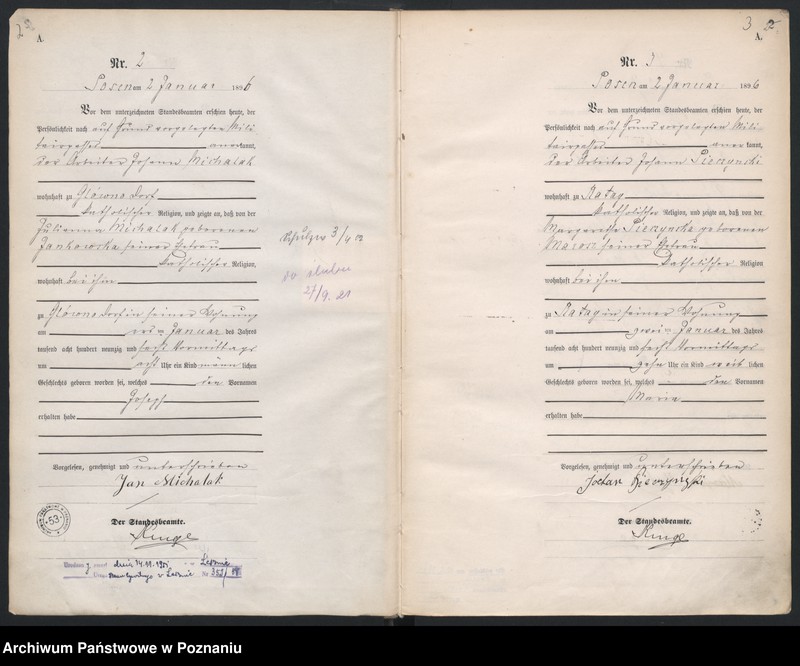 2
A.
Nr. 2
Posen am 2 Januar 1896
Vor dem unterzeichneten Standesbeamten erschien heute, der
Persönlichkeit nach auf Grund vorgelegten Mili-
tairpasses anerkannt,
der Arbeiter Johann Michalak
wohnhaft zu Glówno Dorf
katholischer Religion, und zeigte an, daß von der
Julianna Michalak geborenen
Jankowska seiner Ehefrau
katholischer Religion,
wohnhaft bei ihm
zu Glówno Dorf in seiner Wohnung
am ersten Januar des Jahres
tausend acht hundert neunzig und sechs Vormittags
um acht Uhr ein Kind männlichen
Geschlechts geboren worden sei, welches den Vornamen
Joseph
erhalten habe
Vorgelesen, genehmigt und unterschrieben
Jan Michalak
Der Standesbeamte.
Runge
53
27/9. 21
3
A.
Nr. 3
Posen am 2 Januar 1896
Vor dem unterzeichneten Standesbeamten erschien heute, der
Persönlichkeit nach auf Grund vorgelegten Mili-
tairpasses anerkannt,
der Arbeiter Johann Pieczynski
wohnhaft zu Ratay
katholischer Religion, und zeigte an, daß von der
Margaretha Pieczynska geborenen
seiner Ehefrau
katholischer Religion
wohnhaft bei ihm
zu Ratay in seiner Wohnung
am zweiten Januar des Jahres
tausend acht hundert neunzig und sechs Vormittags
um zehn Uhr ein Kind weiblichen
Geschlechts geboren worden sei, welches den Vornamen
Maria
erhalten habe
Vorgelesen, genehmigt und unterschrieben
Der Standesbeamte.
Runge
Archiwum Państwowe w Poznaniu